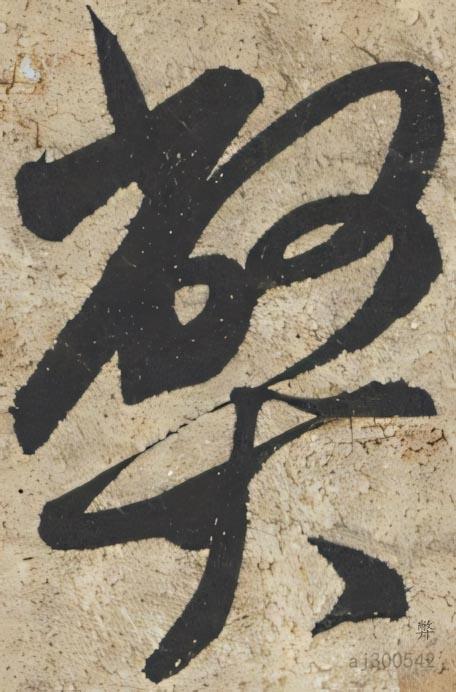 弊
弊
aj300542